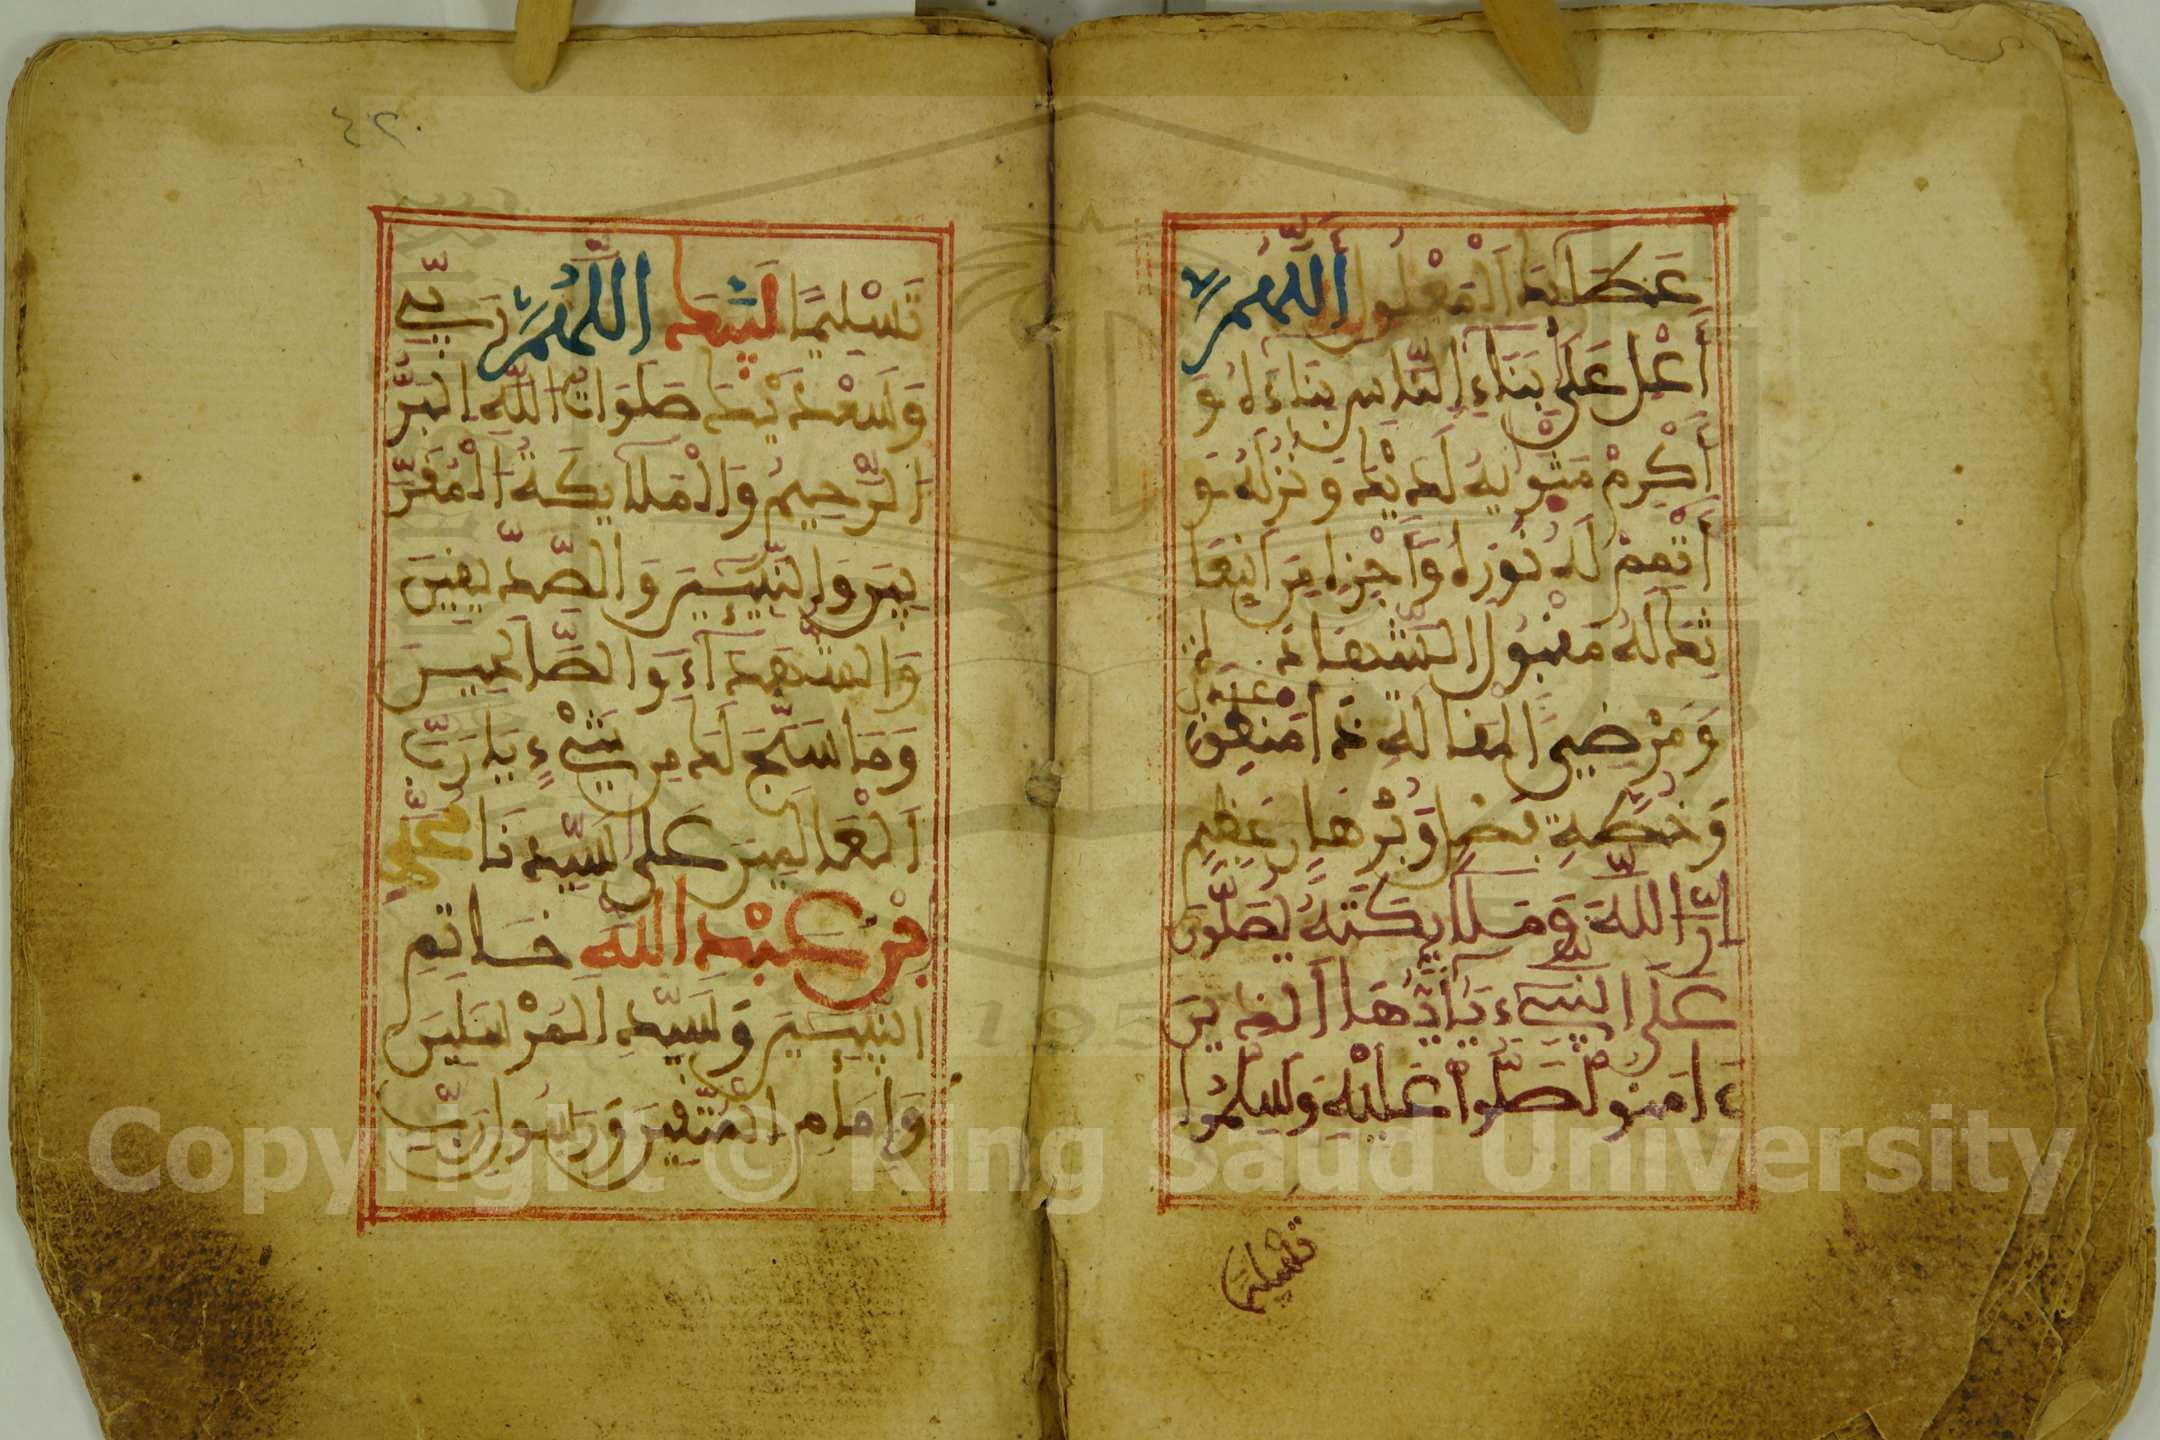 عَطَايِكَ الْمَعْلُولِ اَللَّهُمَّ
أَعْلِ عَلَى بِنَاءِ النَّاسِ بِنَاءَهُ وَ
أَكْرِمْ مَثْوَايهُ لَدَيْكَ وَنُزُلَهُ وَ
أَتْمِمْ لَهُ نُورَهُ وَأَجْزِهِ مِنَ ابْتِعَا
ثِكَ لَهُ مَقْبُولَ الشَّهَادَةِ
وَمَرْضِيَّ الْمَقَالَةِ ذَا مَنْطِقٍ
وَخُطَّةٍ فَصْلٍ وَبُرْهَانٍ عَظِيمٍ
إِنَّ اللَّهَ وَمَلَايِكَتَهُ يُصَلُّونَ
عَلَى النَّبِيءِ يَأَيُّهَا الَّذِينَ
ءَامَنُوا صَلُّوا عَلَيْهِ وَسَلِّمُوا
تسليما
٤٢
تَسْلِيمًا لَبَّيْكَ اللَّهُمَّ رَبِّي
وَسَعْدَيْكَ صَلَوَاتُ اللَّهِ الْبَرِّ
الرَّحِيمِ وَالْمَلَايِكَةِ الْمُقَرَّ
بِينَ وَالنَّبِيِّينَ وَالصِّدِّيقِينَ
وَالشُّهَدَآءِ وَالصَّالِحِينَ
وَمَا سَبَّحَ لَكَ مِن شَيْءٍ يَا رَبَّ
الْعَالَمِينَ عَلَى سَيِّدِنَا مُحَمَّدٍ
ابْنِ عَبْدِ اللَّهِ خَاتِمِ
النَّبِيِّينَ وَسَيِّدِ الْمُرْسَلِينَ
وَإِمَامِ الْمُتَّقِينَ وَرَسُولِ رَبِّ
Copyright © King Saud University
1957